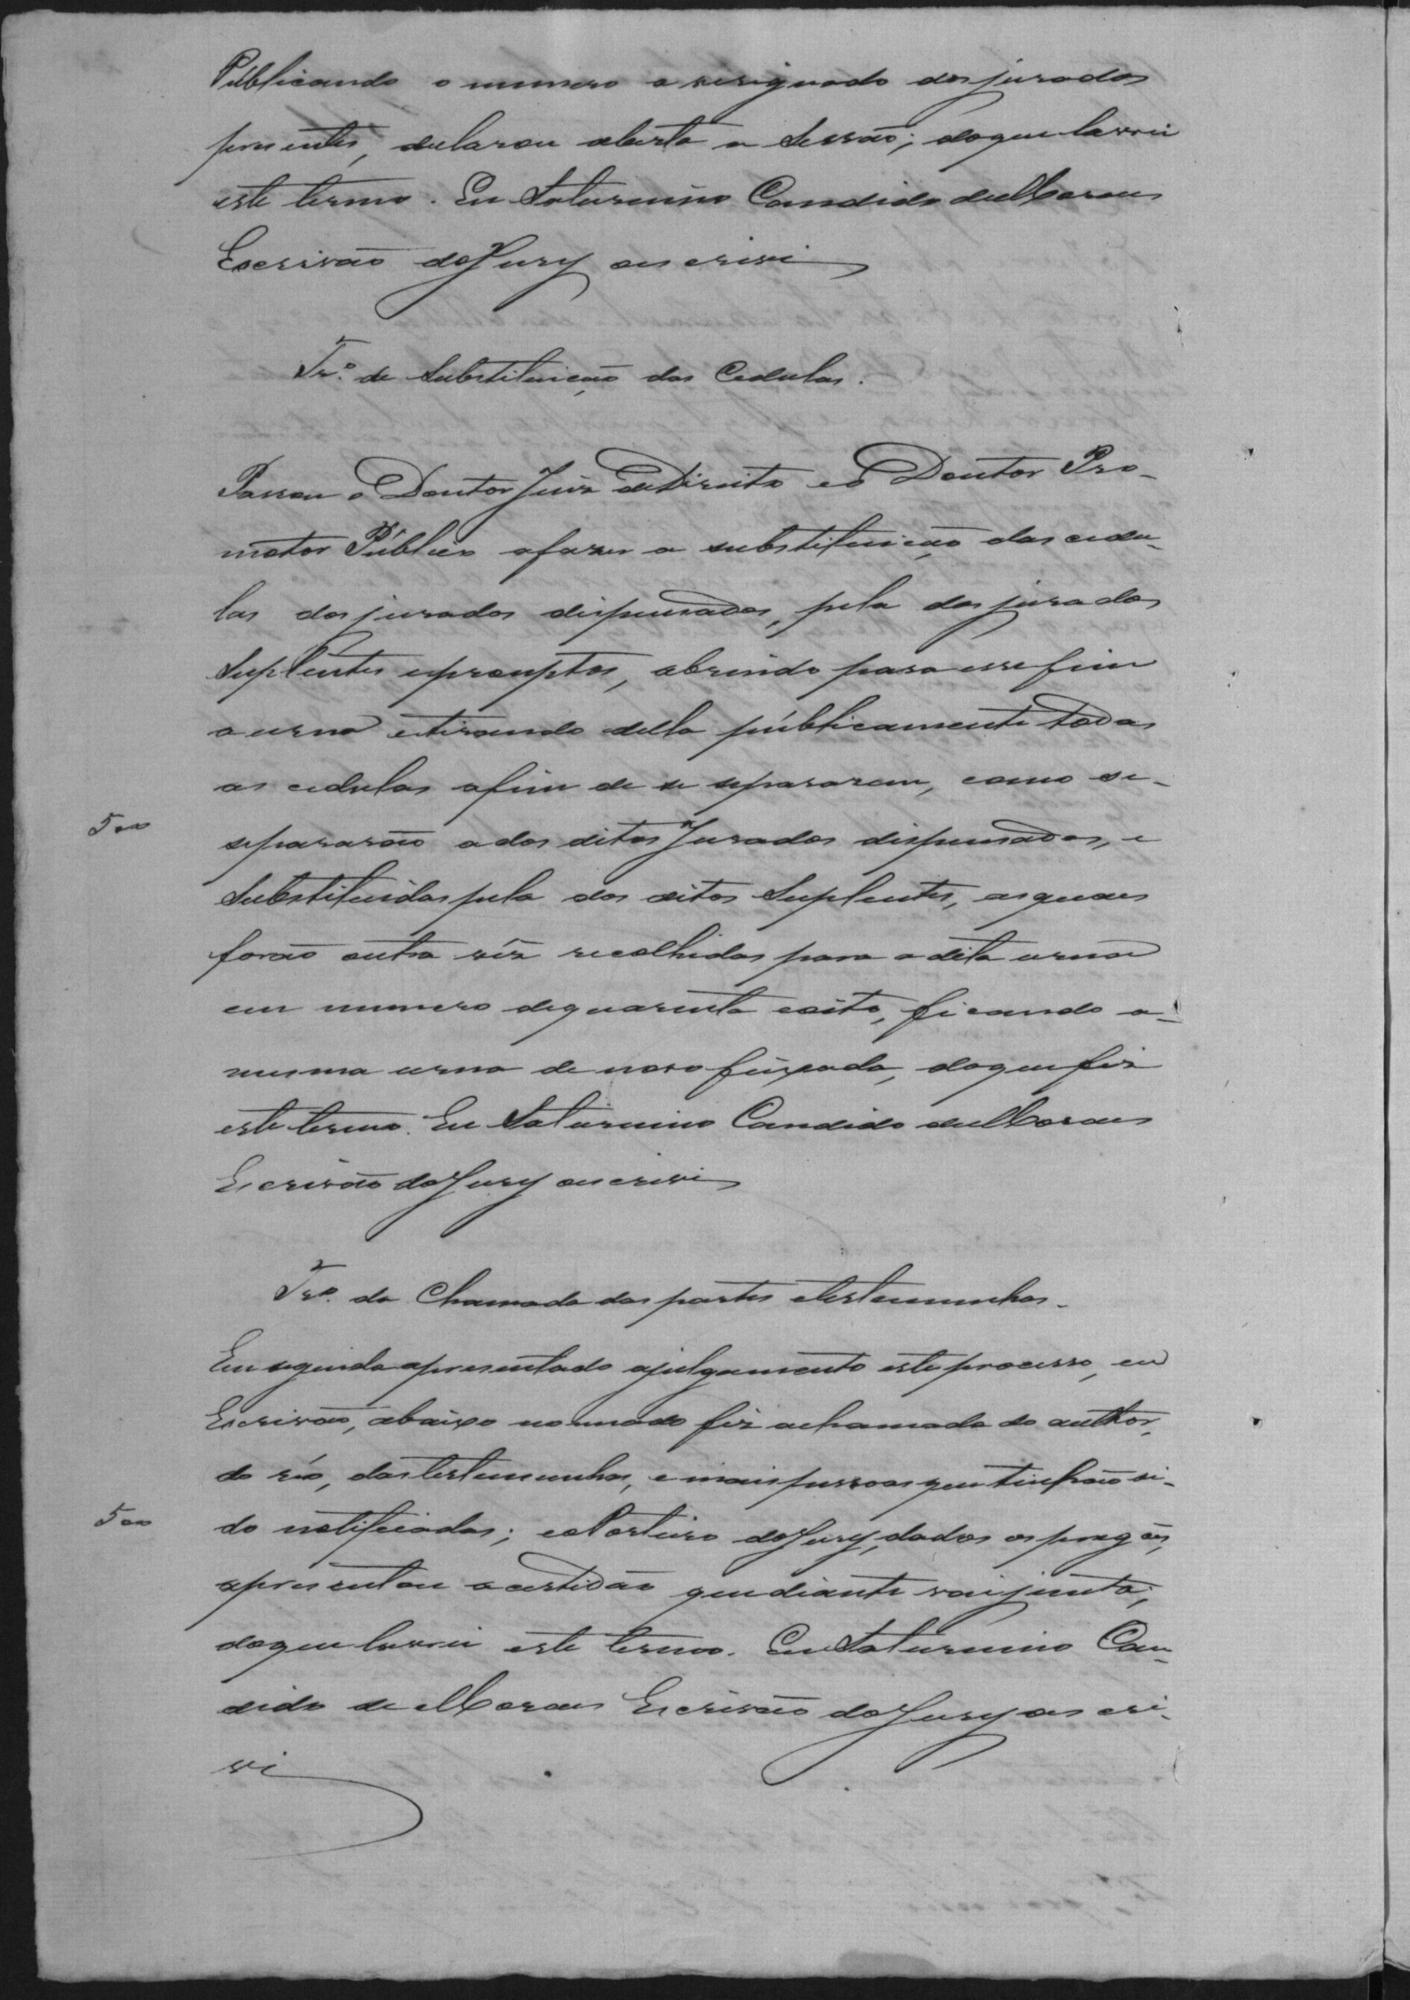 Publicando o numero e resignado dos jurados
presentes, declarou aberta a Sessão; do que lavrei
este termo. Eu Saturnino Candido de Moraes
Escrivão do Jury o escrivi
Tr.º de Substituição das Cedulas.
Passou o Doutor Juiz de Direito e o Doutor Pro-
motor Público a fazer a substituição das cedu-
las dos jurados dispensados, pela dos jurados
Suplentes e promptos, abrindo para esse fim
a urna e tirando della públicamente todas
as cedulas afim de se separarem, como se-
500
separarão a dos ditos Jurados dispensados, e
Substituidas pela dos ditos Suplentes, as quaes
forão outra vêz recolhidas para a dita urna
em numero de quarenta e oito, ficando a-
mesma urna de novo feixada, do que fiz
este termo. Eu Saturnino Candido de Moraes
Escrivão do Jury o escrivi
Tr.º da Chamada das partes e testemunhas.
Em seguida apresentado a julgamento este processo, eu
Escrivão, abaixo nomeado fiz a chamada do author,
do réo, das testemunhas, e mais pessoas que tinhão si-
500
do notificadas; e o Porteiro do Jury, dados os pregões,
apresentou a certidão que diante vai junta;
do que lavrei este termo. Eu Saturnino Can-
dido de Moraes Escrivão do Jury o es cri-
vi